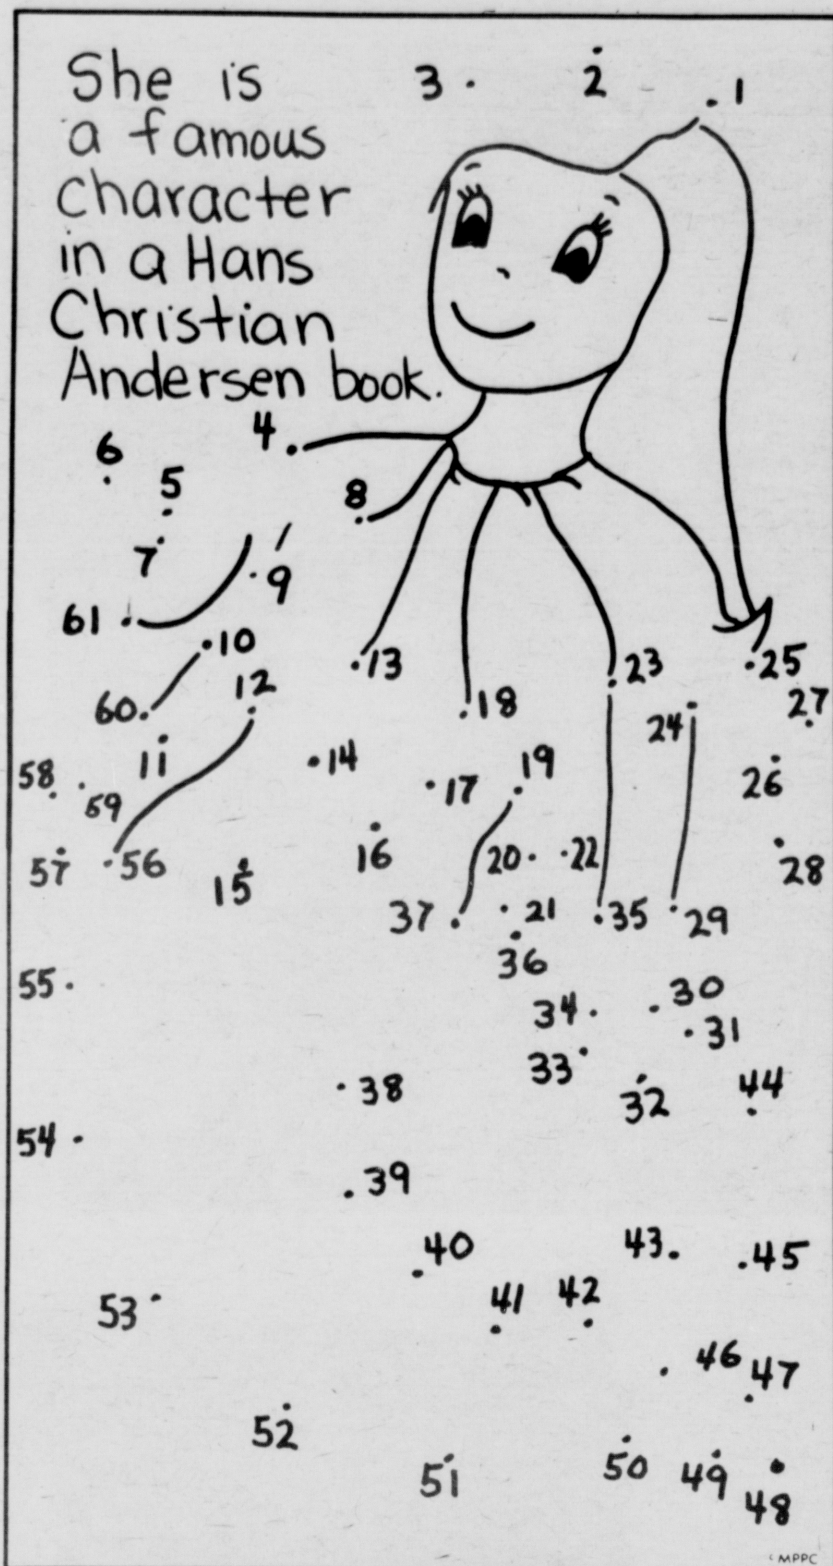 She is
a famous
character
in a Hans
Christian
Andersen book.
3 2 1
4
6
5
8
7
9
61
10
13
23
25
12
60
18
24
27
11
14
19
58
17
26
59
57
56
15
16
20
22
28
37
21
35
29
36
55
34
30
31
33
38
32
44
54
39
40
43
45
53
41
42
46
47
52
51
50
49
48
MPPC